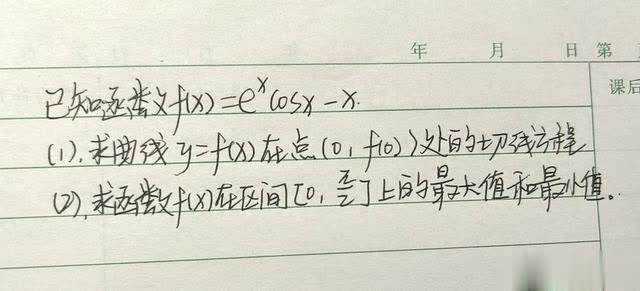 年 月 日 第
课后
已知函数f(x)=e^x cosx-x.
(1).求曲线y=f(x)在点(0,f(0))处的切线方程
(2).求函数f(x)在区间[0,π/2]上的最大值和最小值。